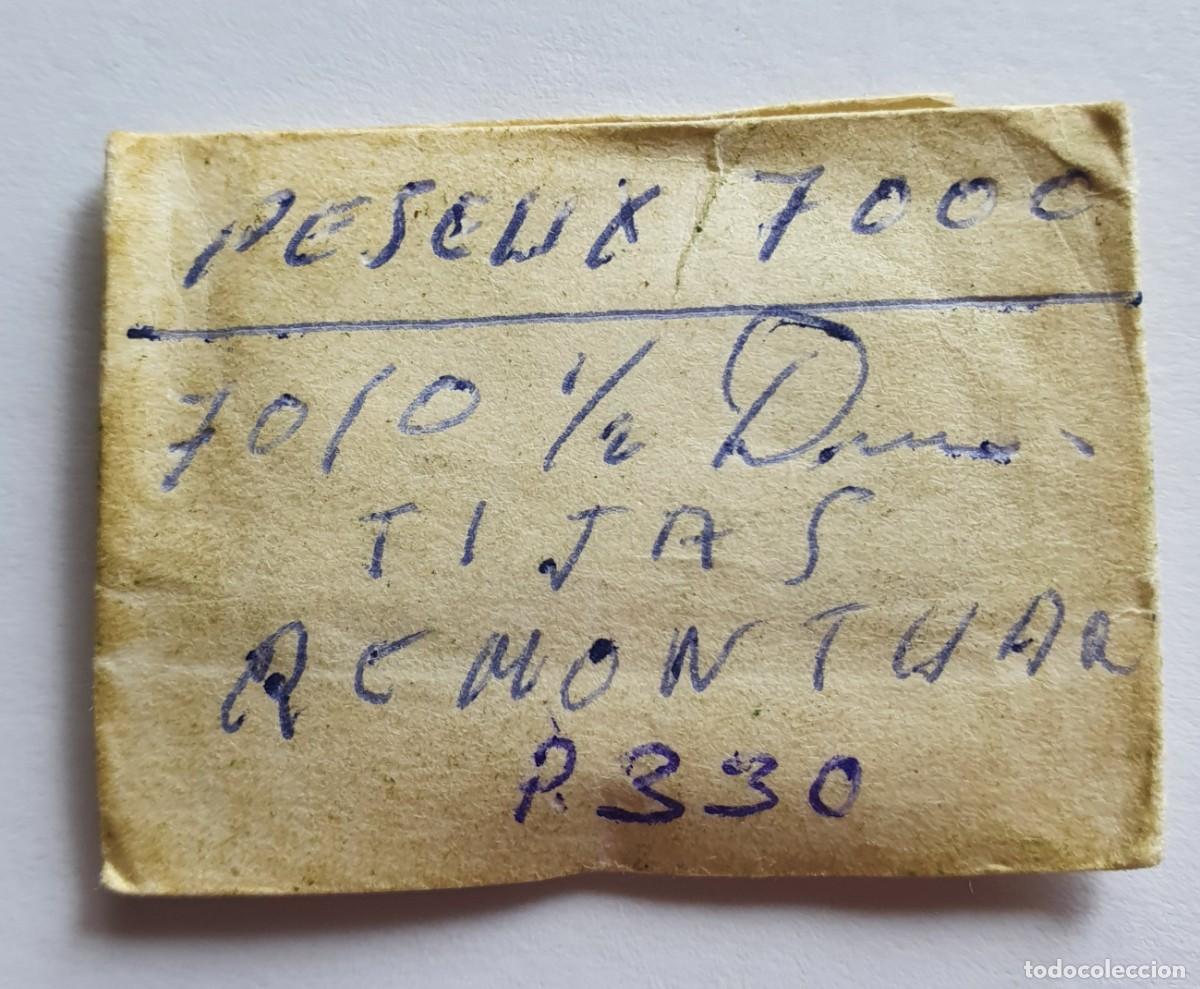 PESEUX 7000
7010 1/2 D
TIJAS
REMONTUAR
P. 330
todocoleccion